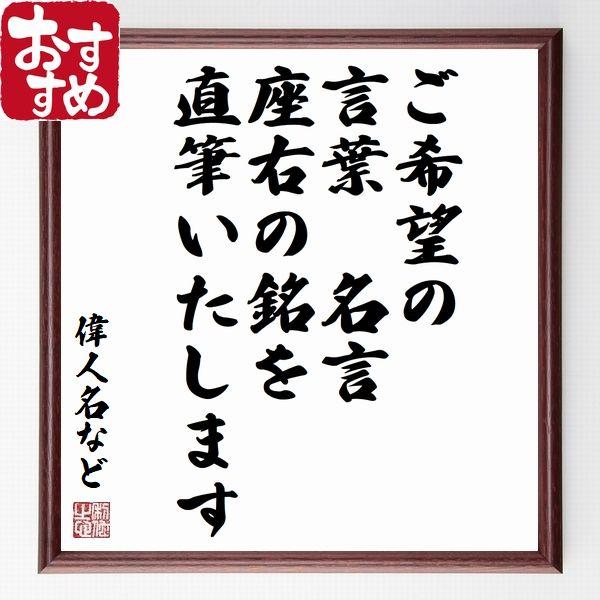 おすすめ
ご希望の
言葉 名言
座右の銘を
直筆いたします
偉人名など